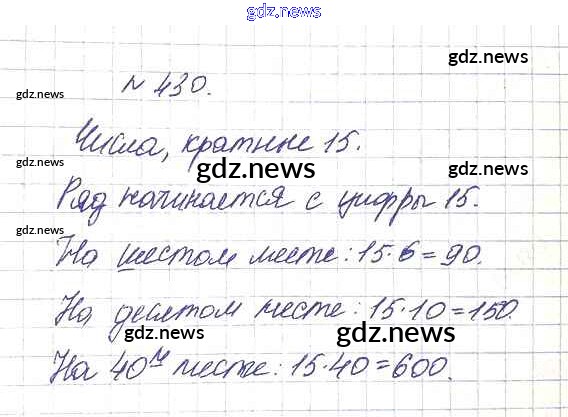 gdz.news
gdz.news
gdz.news
№ 430.
gdz.news
Числа, кратные 15.
gdz.news
gdz.news
Ряд начинается с цифры 15.
gdz.news
На шестом месте: 15·6=90.
На десятом месте: 15·10=150.
gdz.news
gdz.news
На 40м месте: 15·40=600.